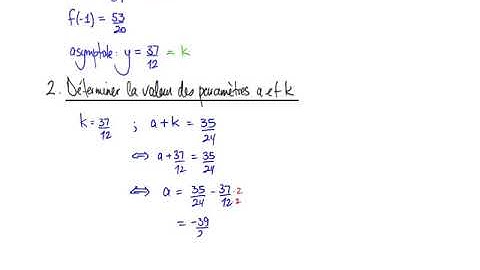 f(-1) = 53/20
asymptote: y = 37/12 = k
2. Déterminer la valeur des paramètres a et k
k = 37/12 ; a + k = 35/24
⇔ a + 37/12 = 35/24
⇔ a = 35/24 - 37/12 ·2/·2
= -39/2